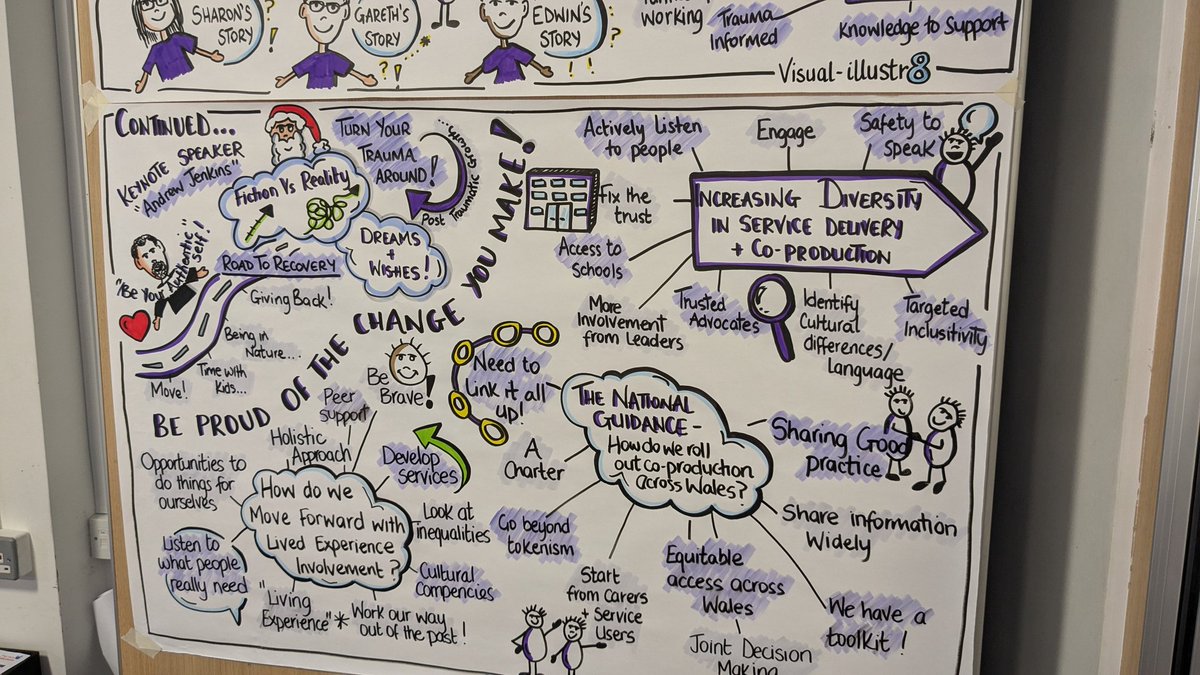 SHARON'S
STORY
GARETH'S
STORY
EDWIN'S
STORY
working
Trauma
Informed
Knowledge to Support
Visual-illustr8
CONTINUED...
KEYNOTE SPEAKER
"Andrew Jenkins"
Fiction Vs Reality
TURN YOUR
TRAUMA
AROUND!
Post Traumatic Growth...
DREAMS
+
WISHES!
"Be Your Authentic
self!"
ROAD TO RECOVERY
Giving Back!
Being in
Nature...
Time with
Kids...
Move!
BE PROUD OF THE CHANGE YOU MAKE!
INCREASING DIVERSITY
IN SERVICE DELIVERY
+ CO-PRODUCTION
Actively Listen
to people
Engage
Safety to
Speak
Fix the
trust
Access to
Schools
More
Involvement
from Leaders
Trusted
Advocates
Identify
Cultural
differences/
Language
Targeted
Inclusitivity
How do we
Move Forward with
Lived Experience
Involvement?
Be
Brave!
Peer
support
Holistic
Approach
Opportunities to
do things for
ourselves
Listen to
what people
really need
"Living
Experience"*
Work our way
out of the past!
Cultural
Compencies
Look at
inequalities
Develop
services
THE NATIONAL
GUIDANCE-
How do we roll
out co-production
across Wales?
Need to
Link it all
up!
A
Charter
Go beyond
tokenism
Start
from Carers
+ Service
Users
Equitable
access across
Wales
Joint Decision
Making
We have a
toolkit!
Share information
Widely
Sharing Good
practice